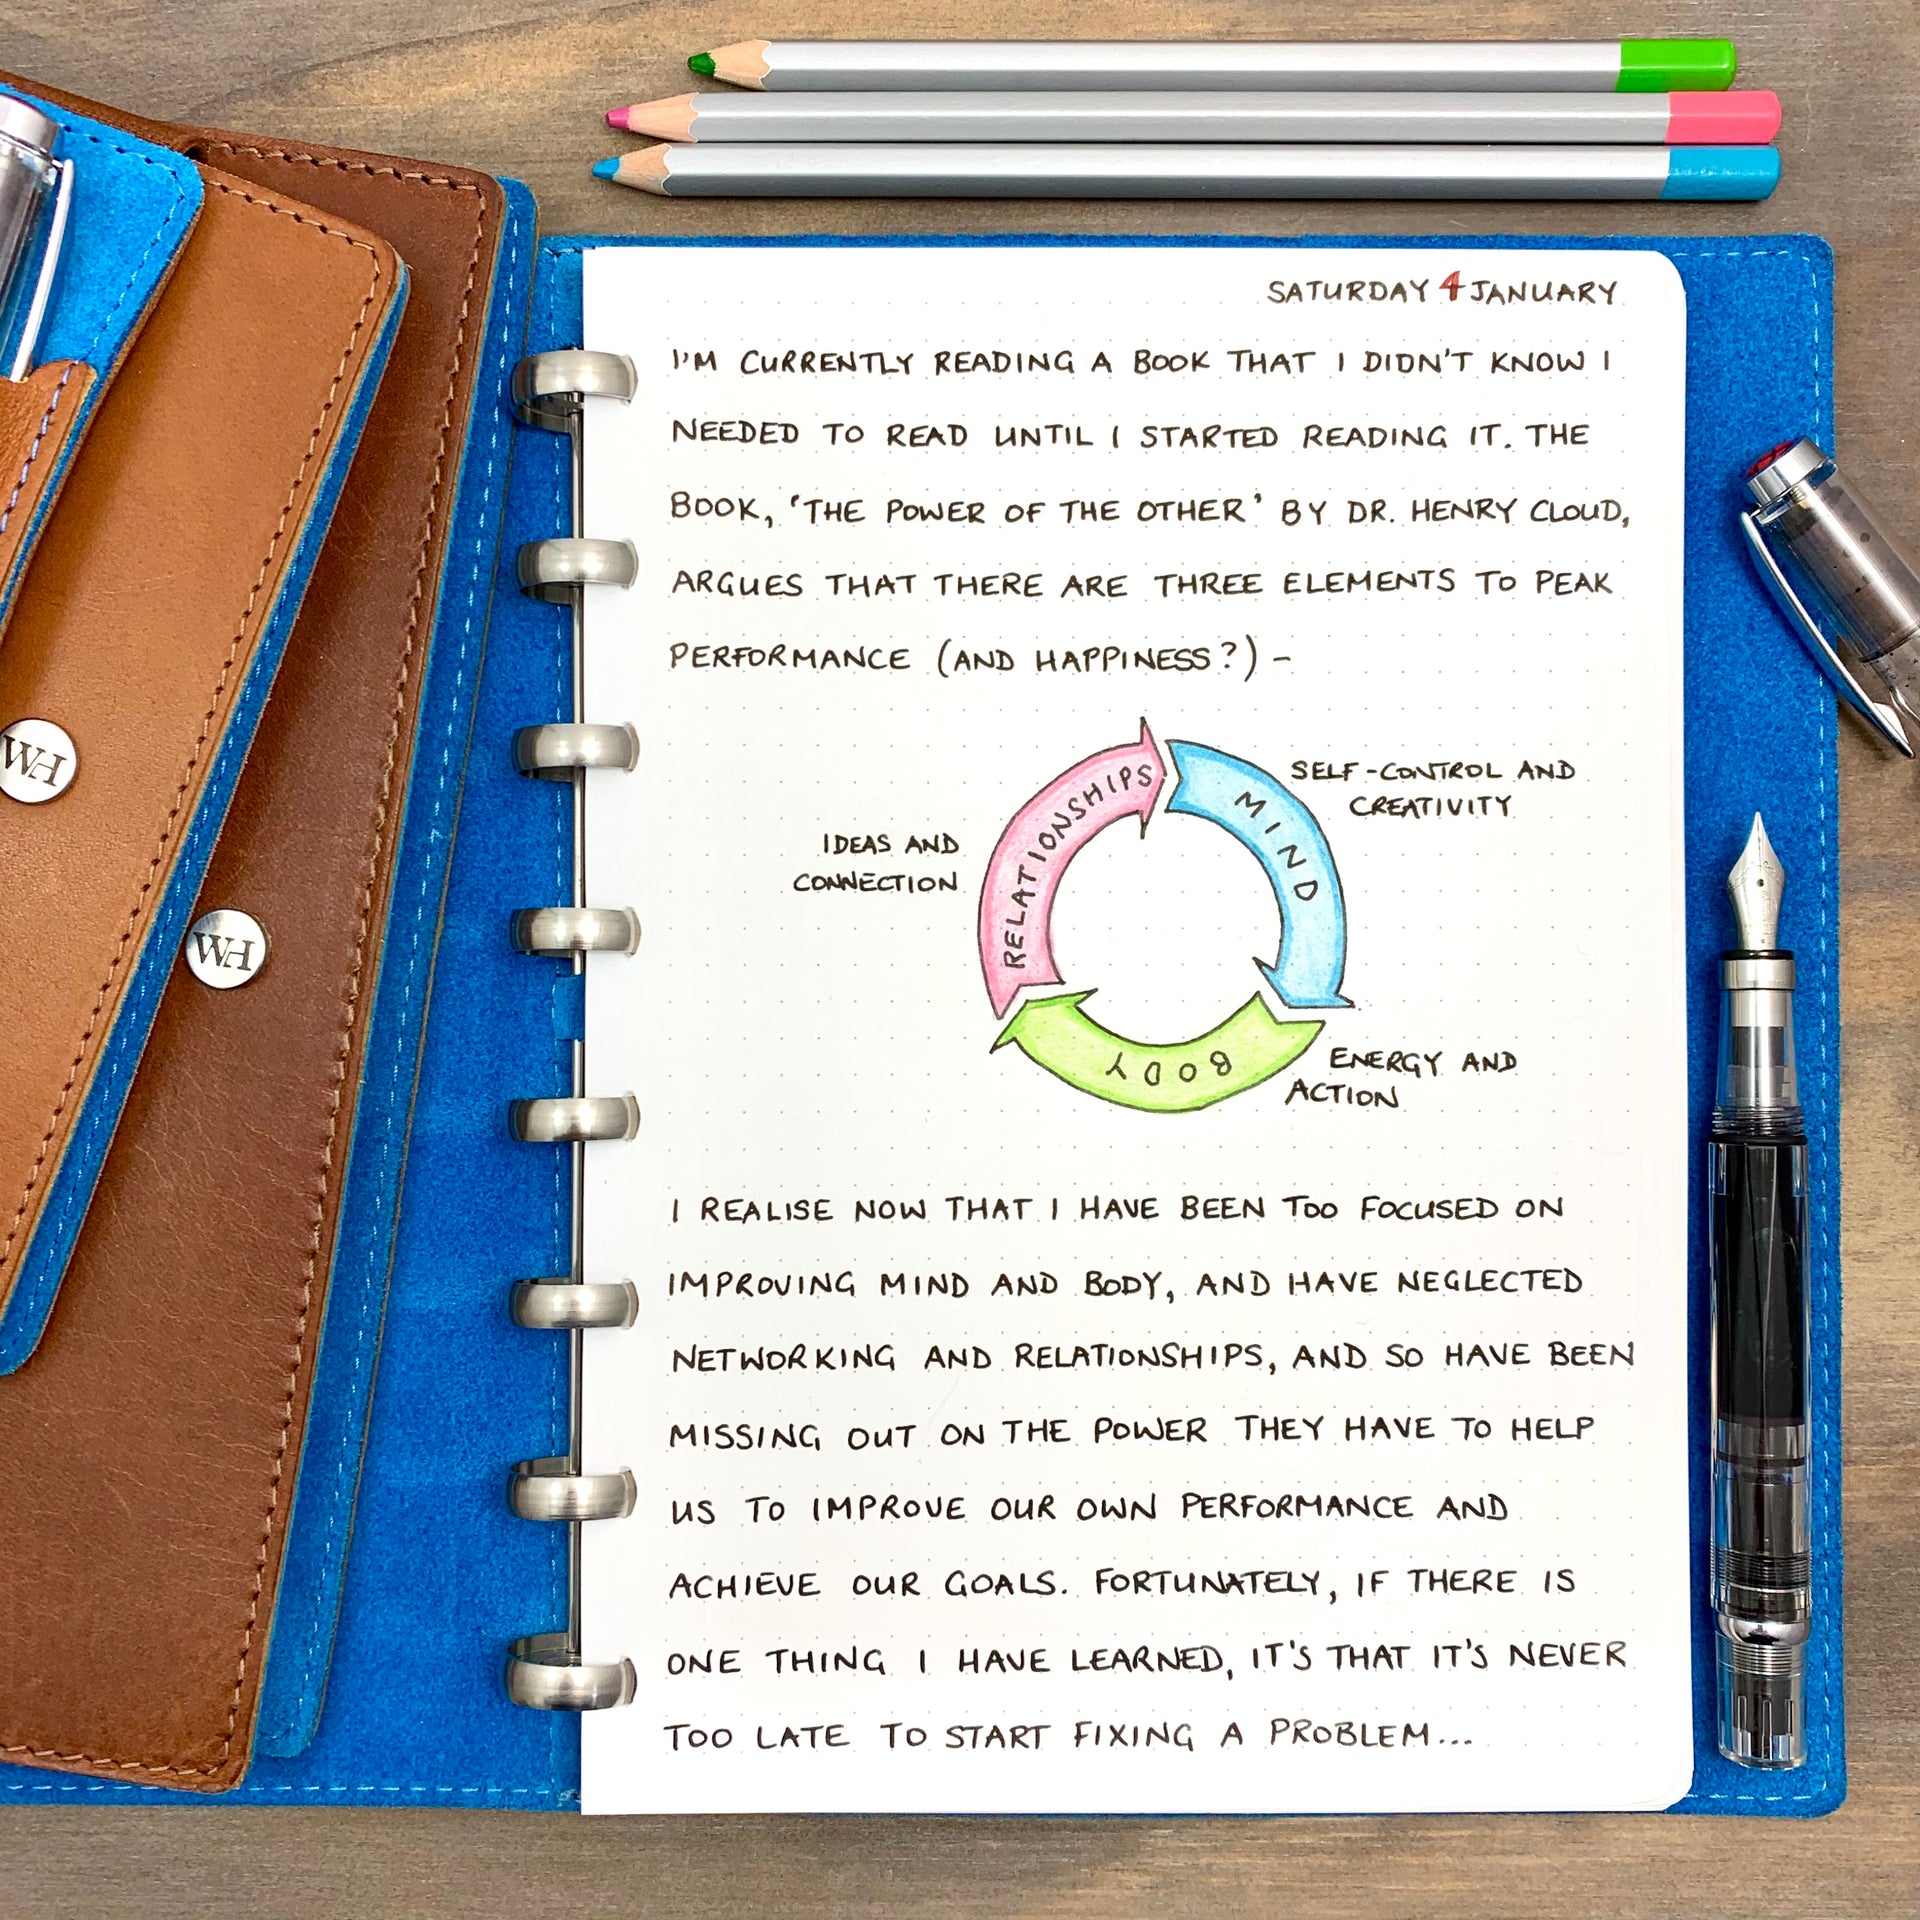 SATURDAY 4 JANUARY
I'M CURRENTLY READING A BOOK THAT I DIDN'T KNOW I
NEEDED TO READ UNTIL I STARTED READING IT. THE
BOOK, 'THE POWER OF THE OTHER' BY DR. HENRY CLOUD,
ARGUES THAT THERE ARE THREE ELEMENTS TO PEAK
PERFORMANCE (AND HAPPINESS?) –
RELATIONSHIPS
MIND
SELF-CONTROL AND
CREATIVITY
IDEAS AND
CONNECTION
BODY
ENERGY AND
ACTION
I REALISE NOW THAT I HAVE BEEN TOO FOCUSED ON
IMPROVING MIND AND BODY, AND HAVE NEGLECTED
NETWORKING AND RELATIONSHIPS, AND SO HAVE BEEN
MISSING OUT ON THE POWER THEY HAVE TO HELP
US TO IMPROVE OUR OWN PERFORMANCE AND
ACHIEVE OUR GOALS. FORTUNATELY, IF THERE IS
ONE THING I HAVE LEARNED, IT'S THAT IT'S NEVER
TOO LATE TO START FIXING A PROBLEM...
WH
WH